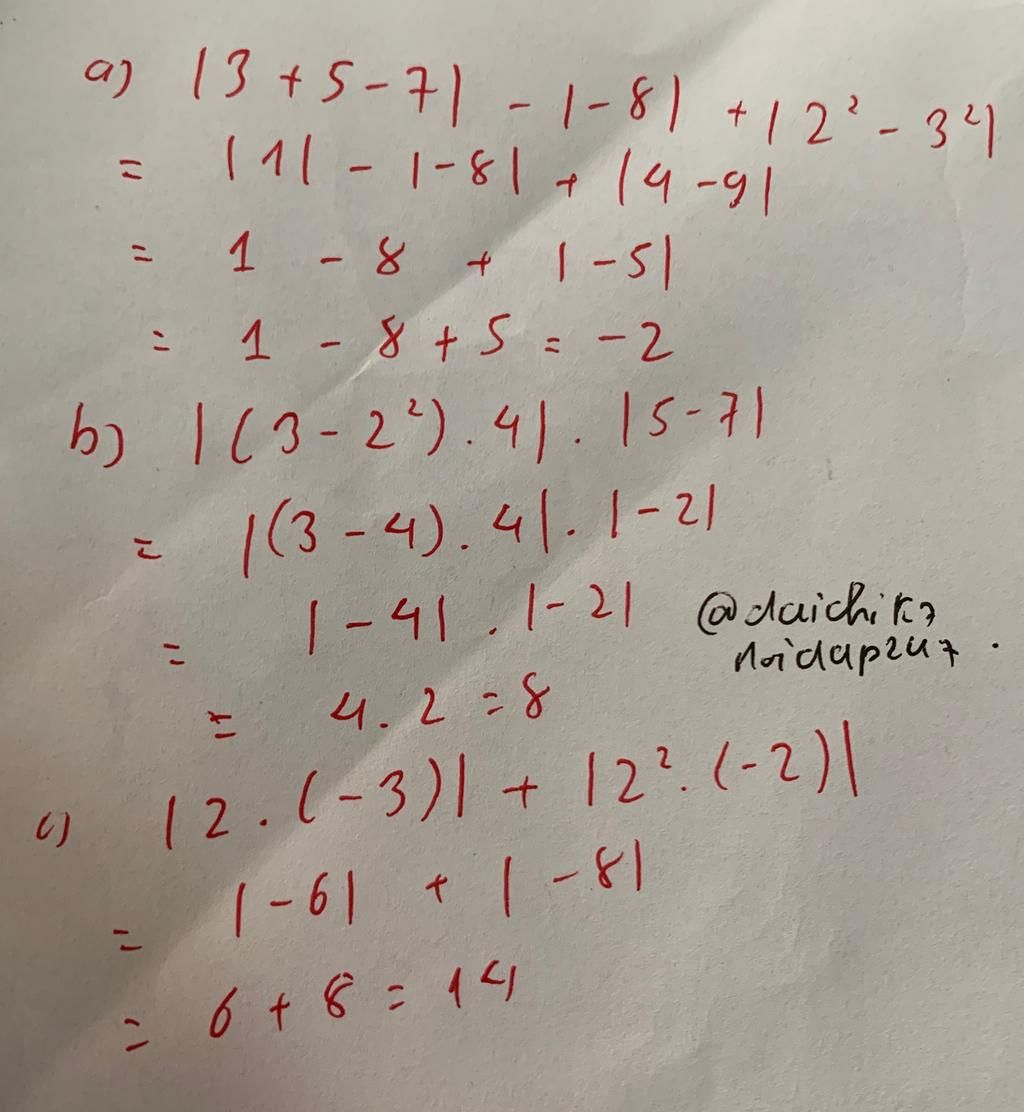 a) |3 + 5 - 7| - |-8| + |2² - 3²|
= |1| - |-8| + |4 - 9|
= 1 - 8 + |-5|
= 1 - 8 + 5 = -2
b) |(3 - 2²) . 4| . |5 - 7|
= |(3 - 4) . 4| . |-2|
= |-4| . |-2|
@daichik7
hoidap247 .
= 4 . 2 = 8
c) |2 . (-3)| + |2² . (-2)|
= |-6| + |-8|
= 6 + 8 = 14